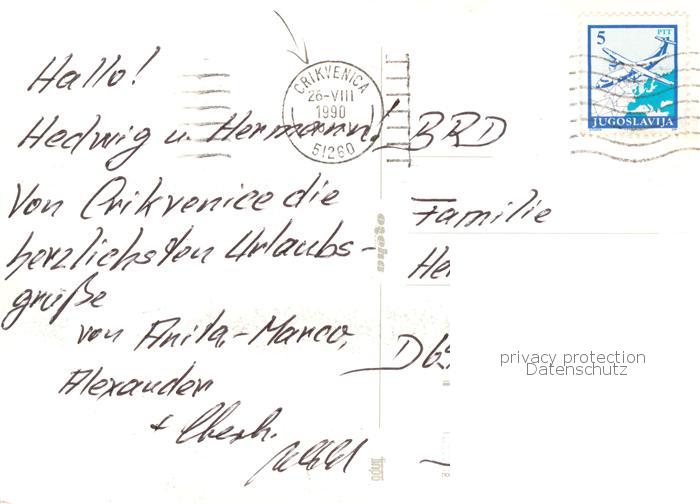 Hallo!
Hedwig u. Hermann!
Von Crikvenice die
herzlichsten Urlaubs-
grüße
von Anita, Marco,
Alexander
+
CRIKVENICA
26-VIII
1990
51260
5
PTT
JUGOSLAVIJA
BRD
Familie
He
D 69
privacy protection
Datenschutz
ozeha